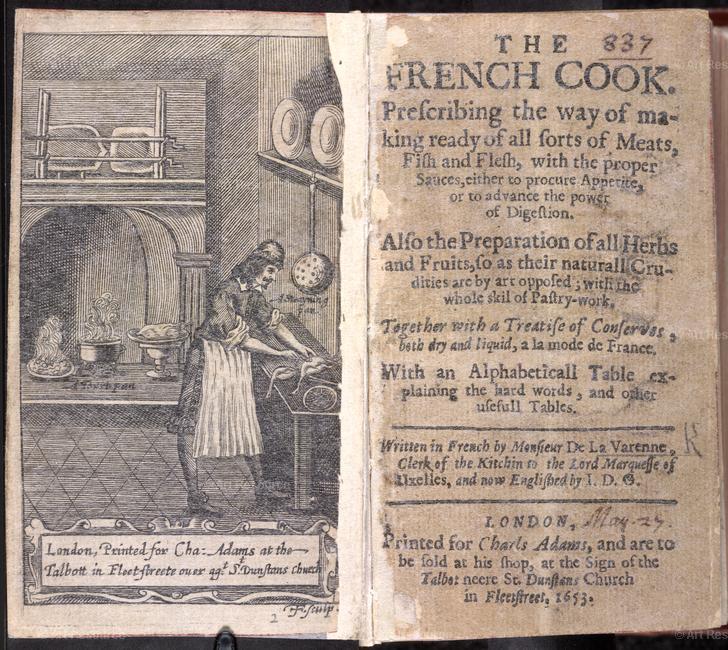 A Skimming
pan.
A Tourt pan
London, Printed for Cha: Adams at the
Talbott in Fleetstreete over agt. St. Dunstans church
sculp.
2
THE 837
FRENCH COOK.
Preſcribing the way of ma-
king ready of all ſorts of Meats,
Fiſh and Fleſh, with the proper
Sauces, either to procure Appetite,
or to advance the power
of Digeſtion.
Also the Preparation of all Herbs
and Fruits, ſo as their naturall Cru-
dities are by art oppoſed; with the
whole skil of Paſtry-work.
Together with a Treatiſe of Conſerves,
both dry and liquid, a la mode de France.
With an Alphabeticall Table ex-
plaining the hard words, and other
uſefull Tables.
Written in French by Monſieur De La Varenne,
Clerk of the Kitchin to the Lord Marqueſſe of
Uxelles, and now Engliſhed by I. D. G.
K
LONDON, May. 27.
Printed for Charls Adams, and are to
be ſold at his ſhop, at the Sign of the
Talbot neere St. Dunſtans Church
in Fleetſtreet, 1653.
© Art Res